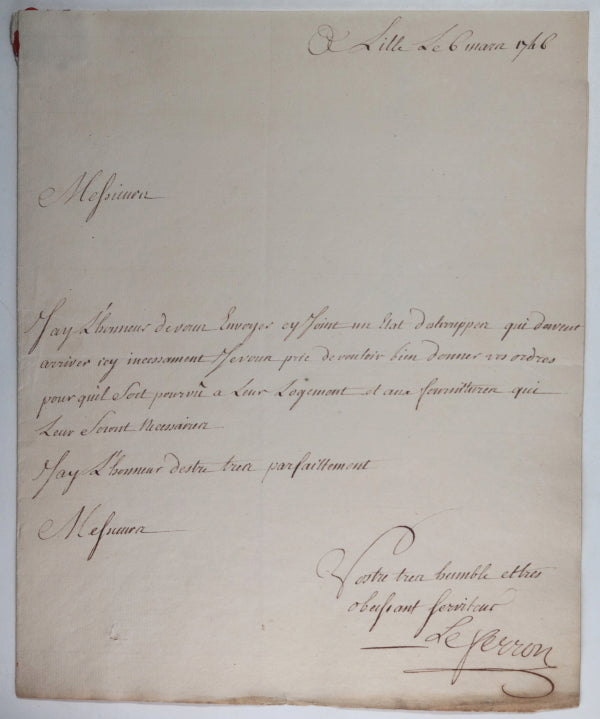 A Lille Le 6 mars 1746
Messieurs
J'ay L'honneur de vous Envoyer cy Joint un Etat des trouppes qui doivent
arriver icy incessament Je vous prie de vouloir bien donner vos ordres
pour qu'il Soit pourvû a Leur Logement et aux fournitures qui
Leur Seront Necessaires
J'ay L'honneur d'estre tres parfaittement
Messieurs
Vostre tres humble et tres
obeissant serviteur
Le Perron